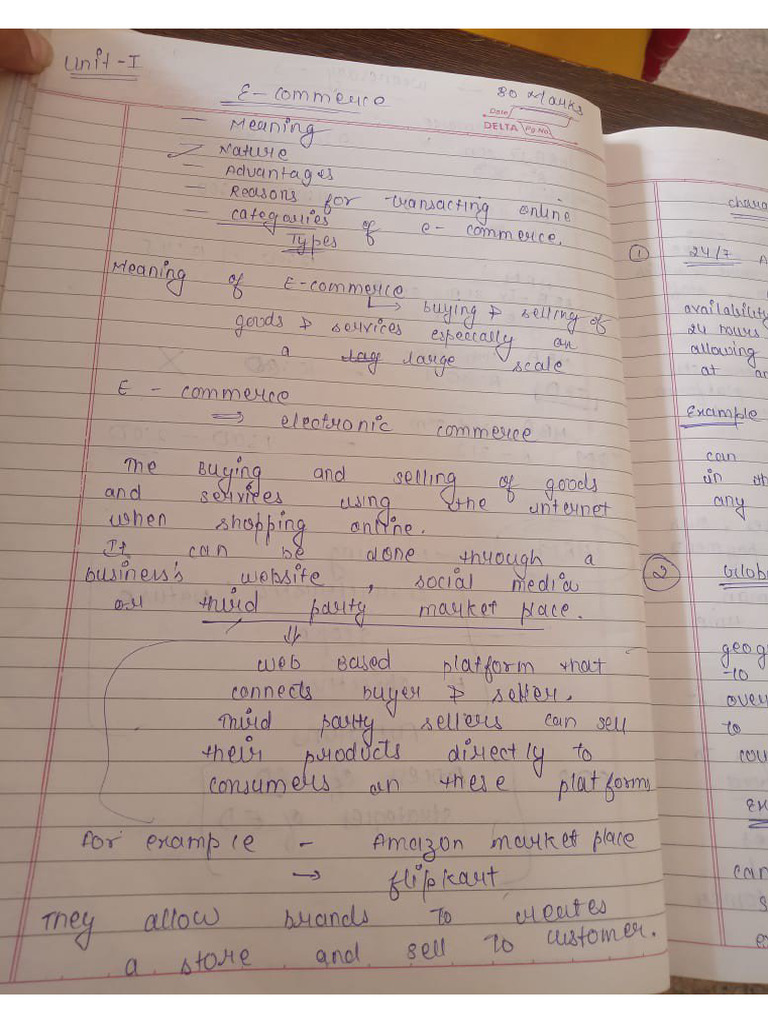 Unit-I
E-commerce
80 Marks
Date
DELTA Pg No.
- Meaning
- Nature
- Advantages
- Reasons for transacting online
- categories of e-commerce.
Types
Meaning of E-commerce
→ buying & selling of
goods & services especially on
a lag large scale
E-commerce
⇒ electronic commerce
The Buying and selling of goods
and services using the internet
when shopping online.
It can be done through a
business's website, social media
or third party market place.
⇓
web Based platform that
connects buyer & seller.
Third party sellers can sell
their products directly to
consumers on these platforms
for example - Amazon market place
→ flipkart
They allow brands to creates
a store and sell to customer.
① 24/7
availability
24 hours
allowing
at
Example
can
in
any
②
to
over
to
can